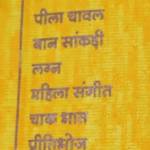 पीला चावल
बान सांकडी
लग्न
महिला संगीत
चाक भात
प्रीतिभोज